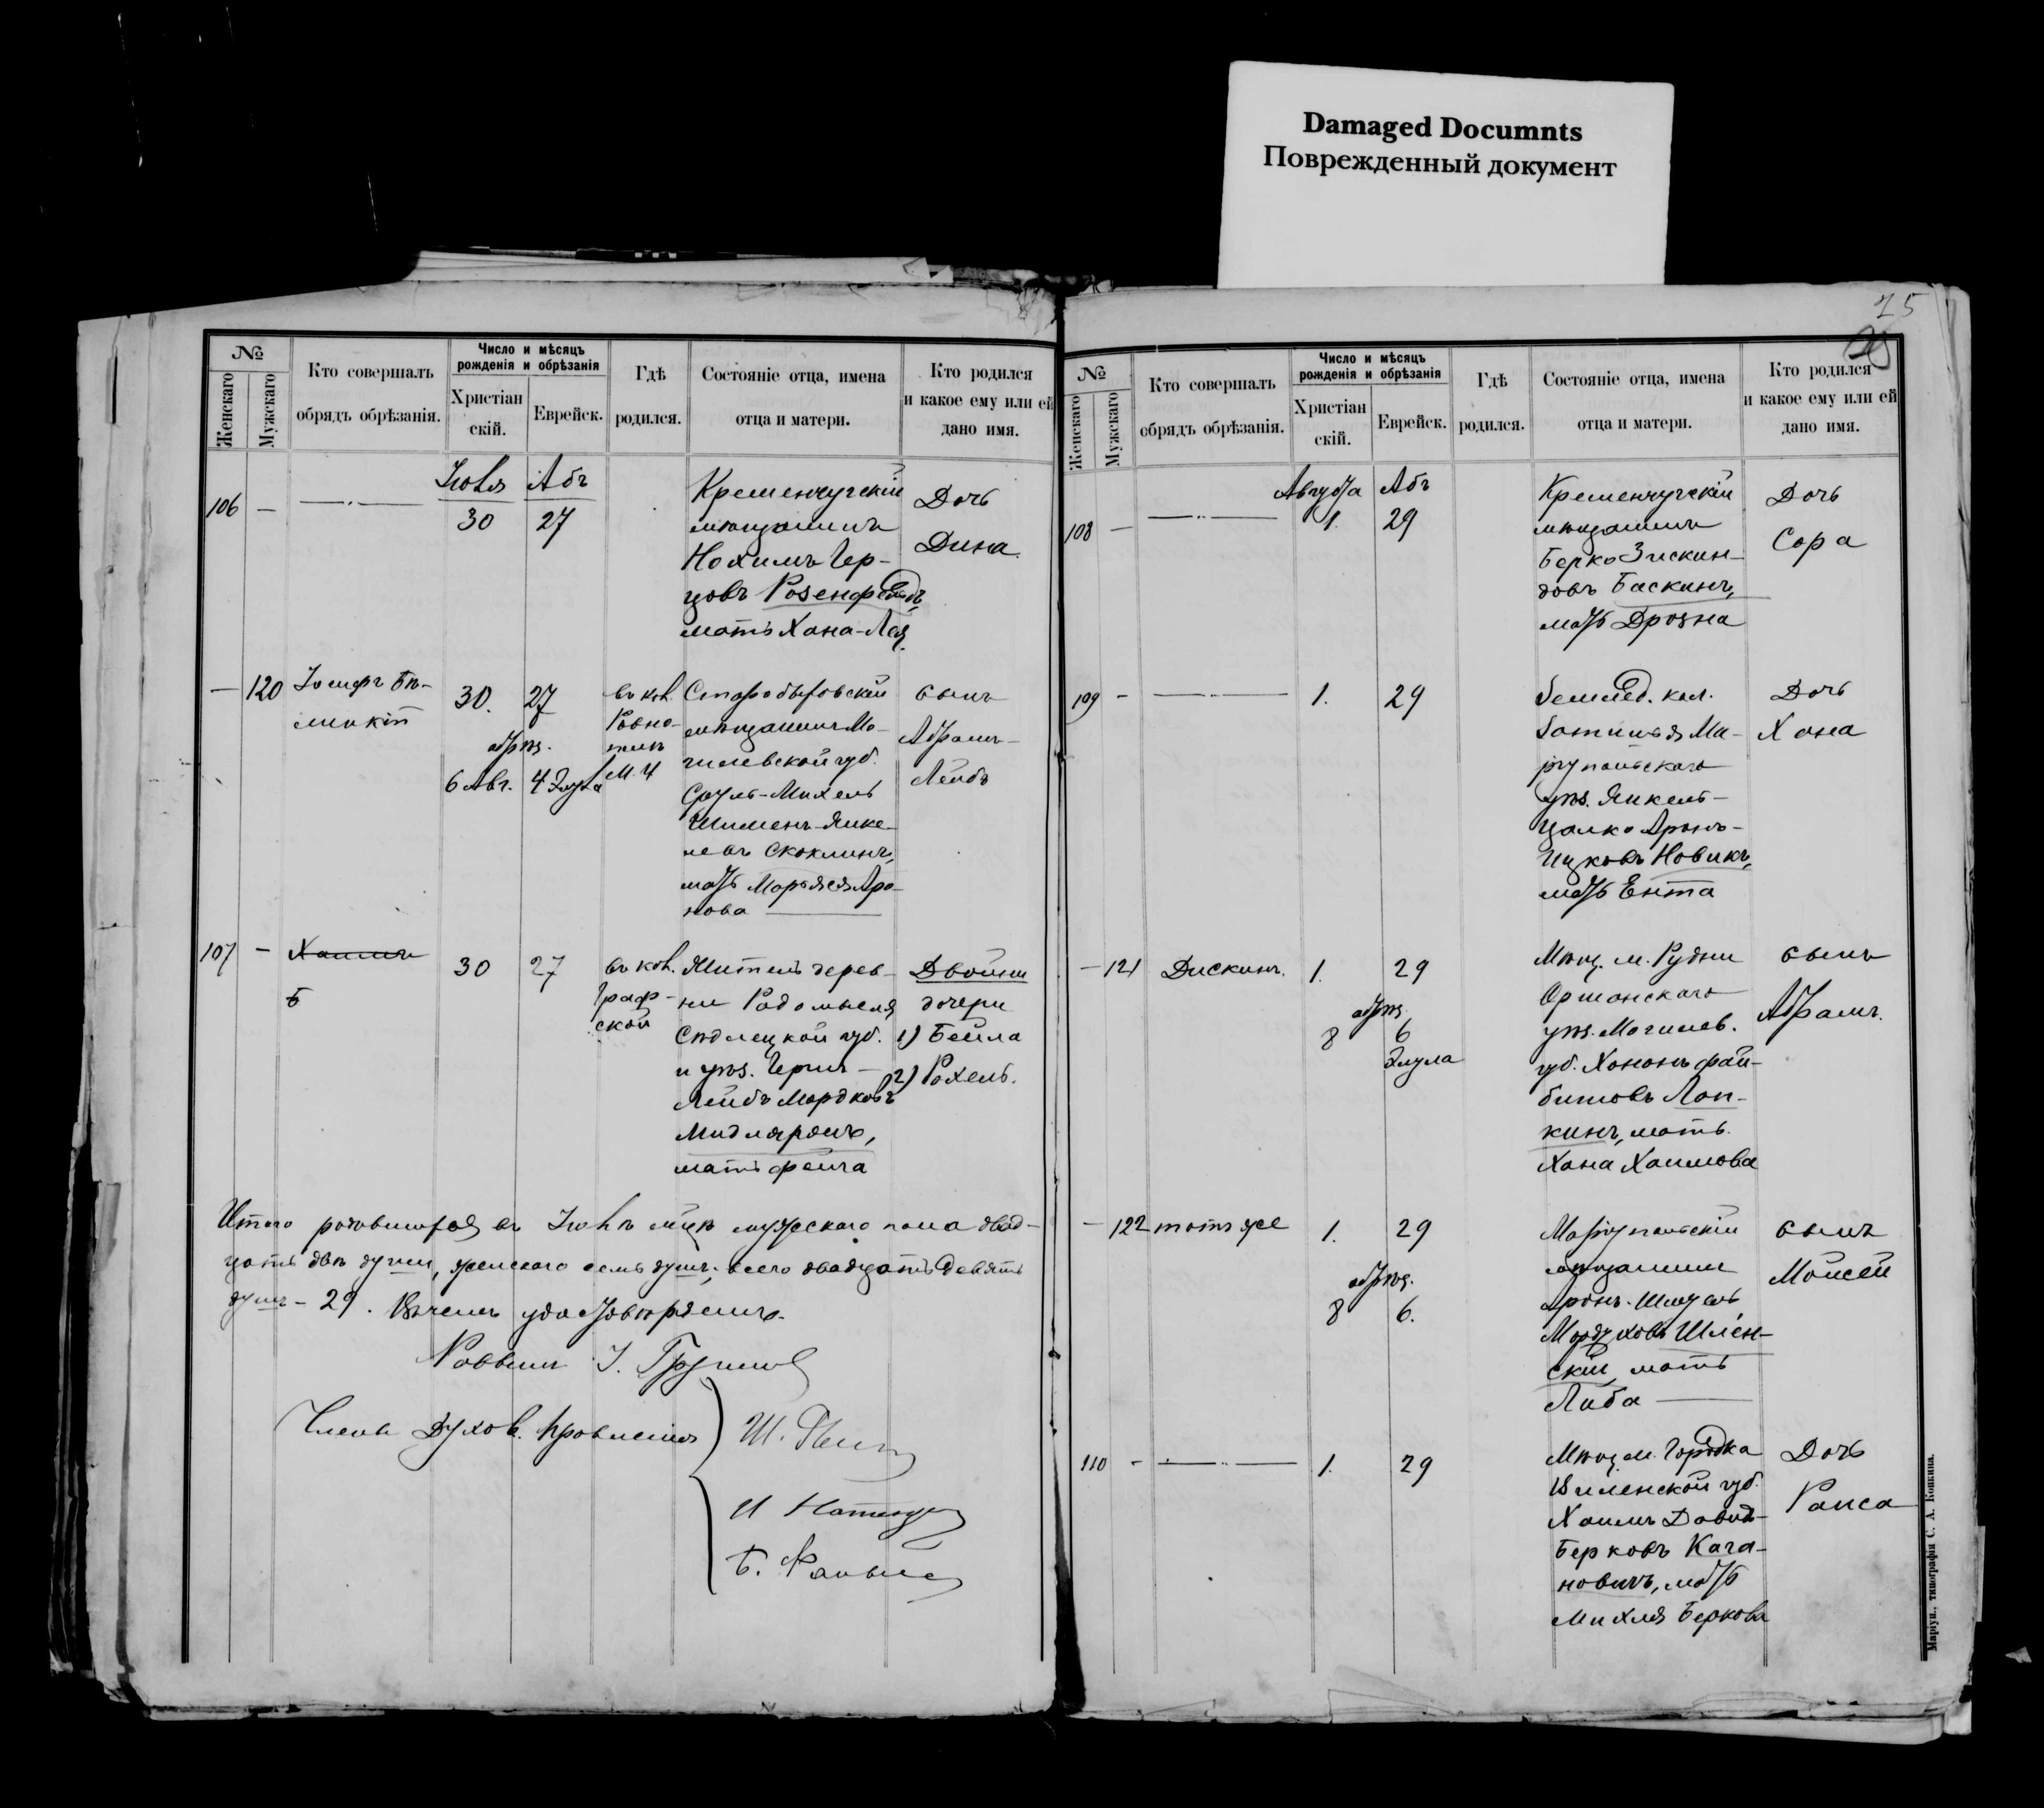 Damaged Documnts
Поврежденный документ
№
Женскаго
Мужскаго
Кто совершалъ
обрядъ обрѣзанія.
Число и мѣсяцъ
рожденія и обрѣзанія
Христіан
скій.
Еврейск.
Гдѣ
родился.
Состояніе отца, имена
отца и матери.
Кто родился
и какое ему или ей
дано имя.
106
—
Іюля
30
Абъ
27
Кременчугскій
мѣщанинъ
Нохимъ Гер-
цовъ Розенфельдъ,
мать Хана-Лея.
Дочь
Дина.
—
120
30.
обрѣз.
6 Авг.
27
4 Элула
въ кол.
Ровно-
поль
М. У
Старобыховскій
мѣщанинъ Мо-
гилевской губ.
Сруль-Михель
Шименъ-Янке-
левъ Скоклинъ,
мать Марьяся Аро-
нова
сынъ
Абрамъ-
Лейбъ
107
—
Хаимъ
Б
30
27
въ кол.
Граф-
ской
Житель дерев-
ни Радомысля
Сѣдлецкой губ.
и уѣз. Герш-
Лейбъ Мордковъ
Мидляражъ,
мать Фейга
Двойни
дочери
1) Бейла
2) Рохель.
Итого родившихся въ Іюлѣ м-цѣ мужескаго пола двад-
цать двѣ души, женскаго семь душъ; всего двадцать девять
душъ - 29. Въ чемъ удостовѣряемъ.
Раввинъ
Члены Духов. Правленія
75
№
Женскаго
Мужскаго
Кто совершалъ
обрядъ обрѣзанія.
Число и мѣсяцъ
рожденія и обрѣзанія
Христіан
скій.
Еврейск.
Гдѣ
родился.
Состояніе отца, имена
отца и матери.
Кто родился
и какое ему или ей
дано имя.
108
—
Августа
1.
Абъ
29
Кременчугскій
мѣщанинъ
Берко Зискин-
довъ Баскинъ,
мать Дрозна
Дочь
Сора
109
-
1.
29
Землед. кол.
Затишья Ма-
ріупольскаго
уѣз. Янкель-
Цалко Аронъ-
Ицковъ Новикъ,
мать Ента
Дочь
Хана
—
121
Дискинъ.
1.
обрѣз.
8
29
6
Элула
Мѣщ. м. Рудни
Оршанскаго
уѣз. Могилев.
губ. Хононъ Фай-
бишовъ Лап-
кинъ, мать
Хана Хаимова
сынъ
Абрамъ.
—
122
тотъ же
1.
обрѣз.
8
29
6.
Маріупольскій
мѣщанинъ
Аронъ-Шмуель
Мордуховъ Шлен-
скій, мать
Либа
сынъ
Моисей
110
-
1.
29
Мѣщ. м. Городка
Виленской губ.
Хаимъ Давид-
Берковъ Кага-
новичъ, мать
Михля Беркова
Дочь
Раиса
Маріуп., типографія С. А. Копкина.